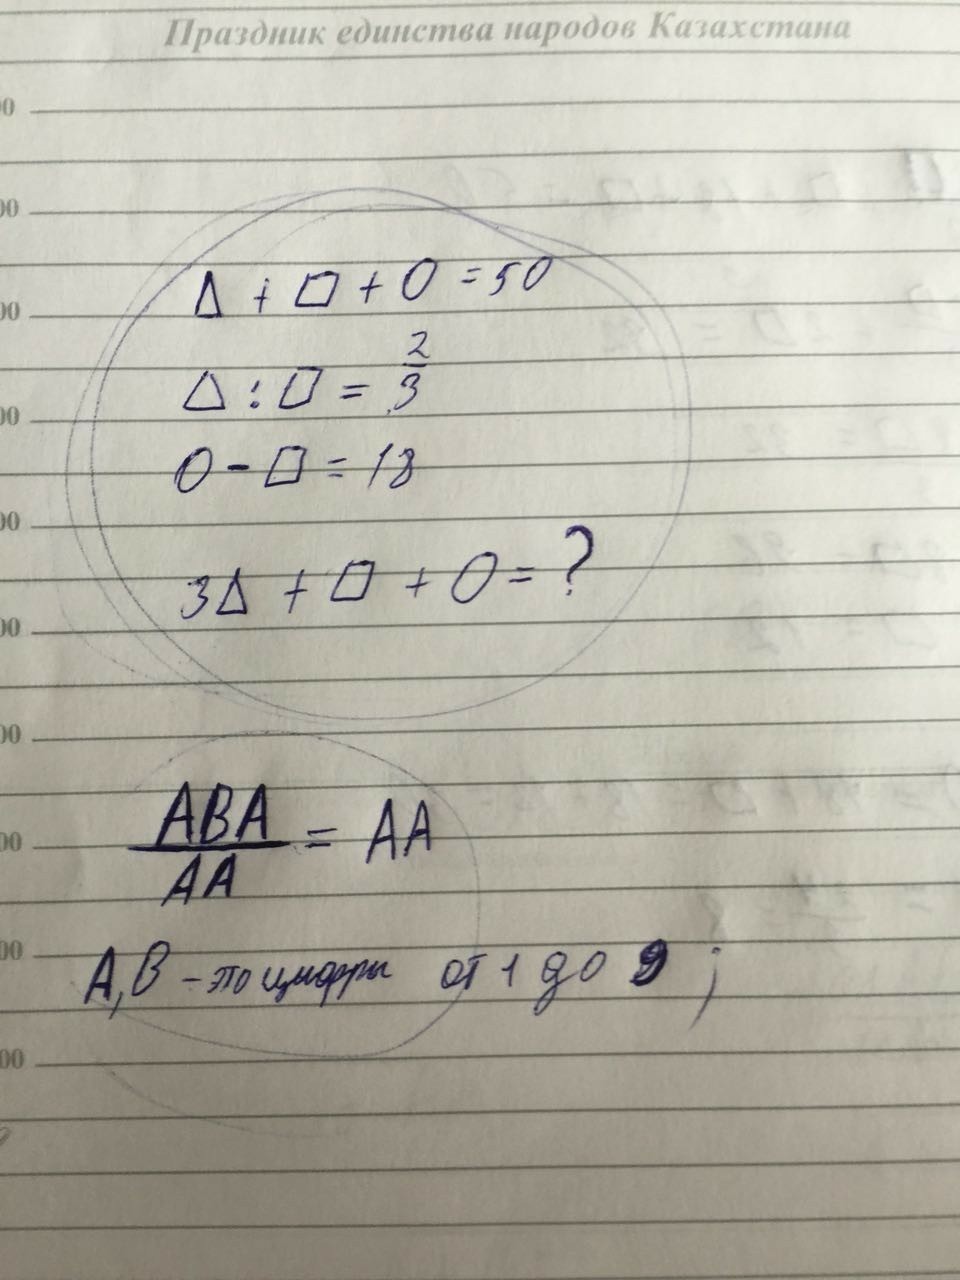 Праздник единства народов Казахстана
Δ + □ + O = 50
Δ : □ = 2/3
O - □ = 18
3Δ + □ + O = ?
ABA
AA
= AA
A, B - это цифры от 1 до 9;